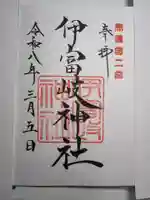 美濃國二宮
奉拝
伊富岐神社
令和八年三月五日